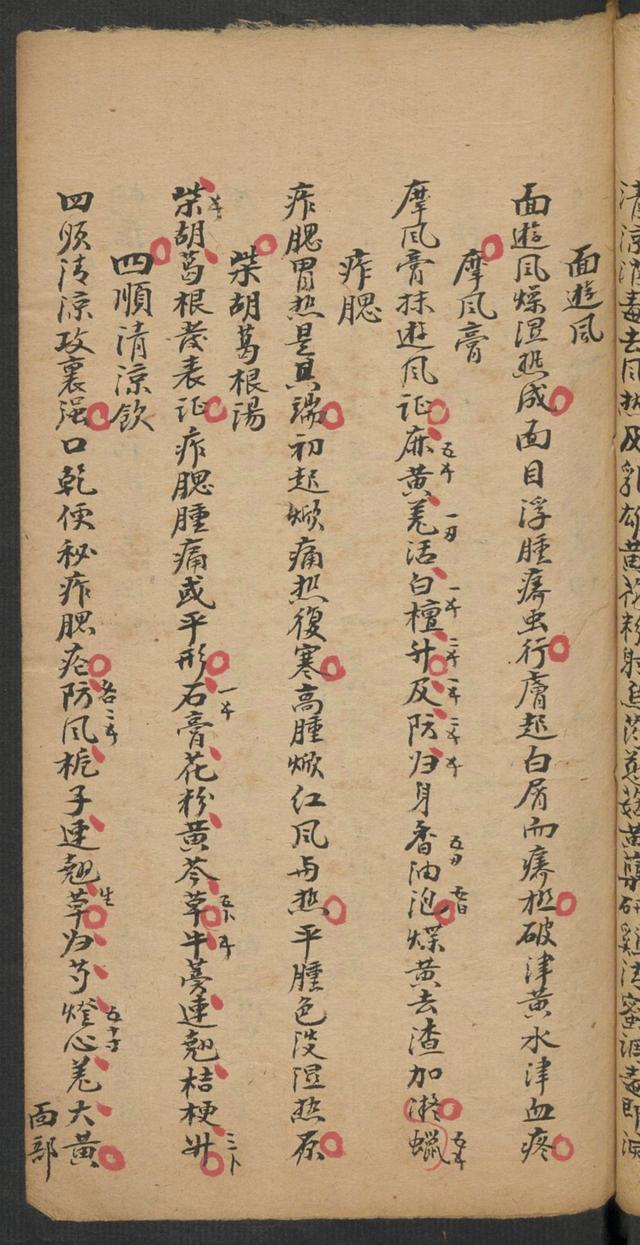 清涼消毒去風热及乳 雄黄花粉射
面遊风
面遊风燥湿热成面目浮腫痒虫行膚起白屑而痒极破津黄水津血疼
摩风膏
摩风膏抹遊风证麻黄羌活白檀升及防归身香油泡煠黄去渣加凝蠟
痄腮
痄腮胃热是其端初起焮痛热復寒高腫焮红风与热平腫色淡湿热原
柴胡葛根湯
柴胡葛根发表证痄腮腫痛或平形石膏花粉黄芩草牛蒡連翹桔梗升
四順清涼飲
四順清涼攻裏强口乾便秘痄腮疮防风栀子連翹草归芍燈心羌大黄
面部